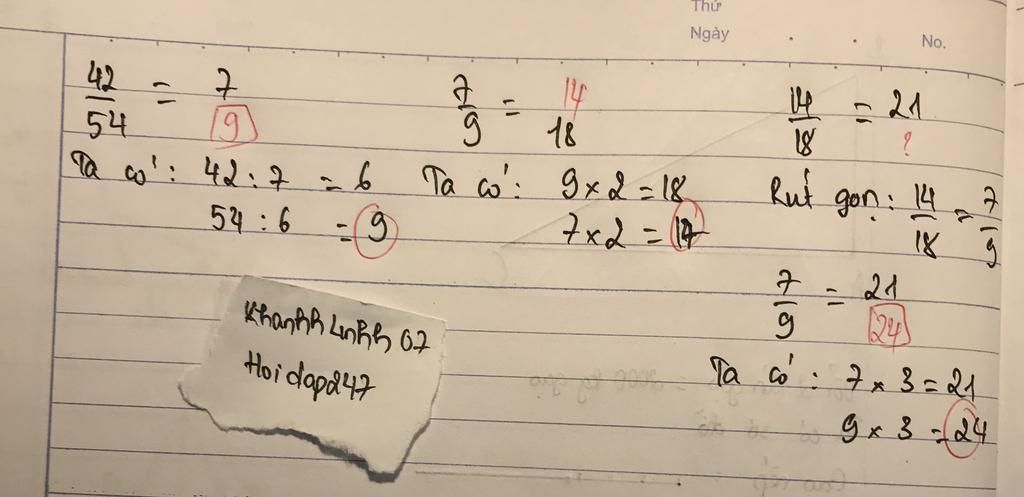 Thứ
Ngày . . No.
42/54 = 7/9
Ta có: 42 : 7 = 6
54 : 6 = 9
7/9 = 14/18
Ta có: 9 x 2 = 18
7 x 2 = 14
14/18 = 21/?
Rút gọn: 14/18 = 7/9
7/9 = 21/24
Ta có: 7 x 3 = 21
9 x 3 = 24
Khanhh Linhh 07
Hoidap247